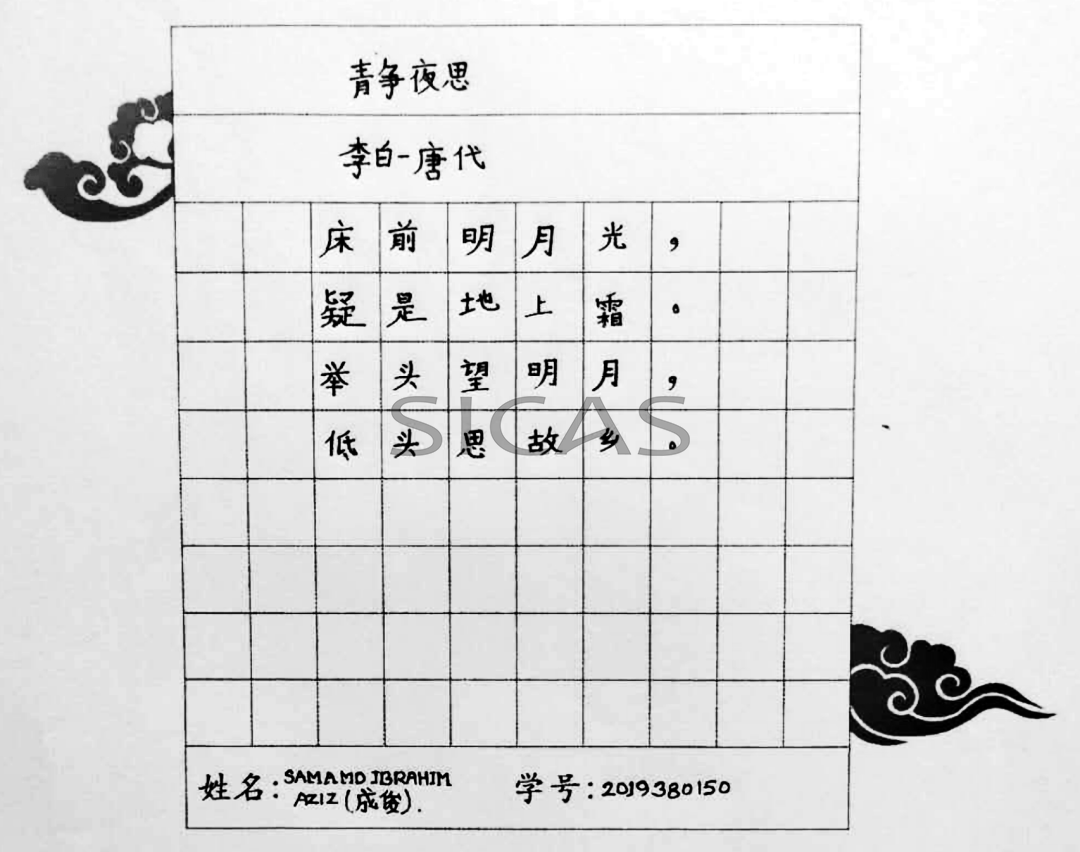 静夜思
李白-唐代
床前明月光，
疑是地上霜。
举头望明月，
低头思故乡。
SICAS
姓名: SAMAMD IBRAHIM
AZIZ (成俊).
学号: 2019380150